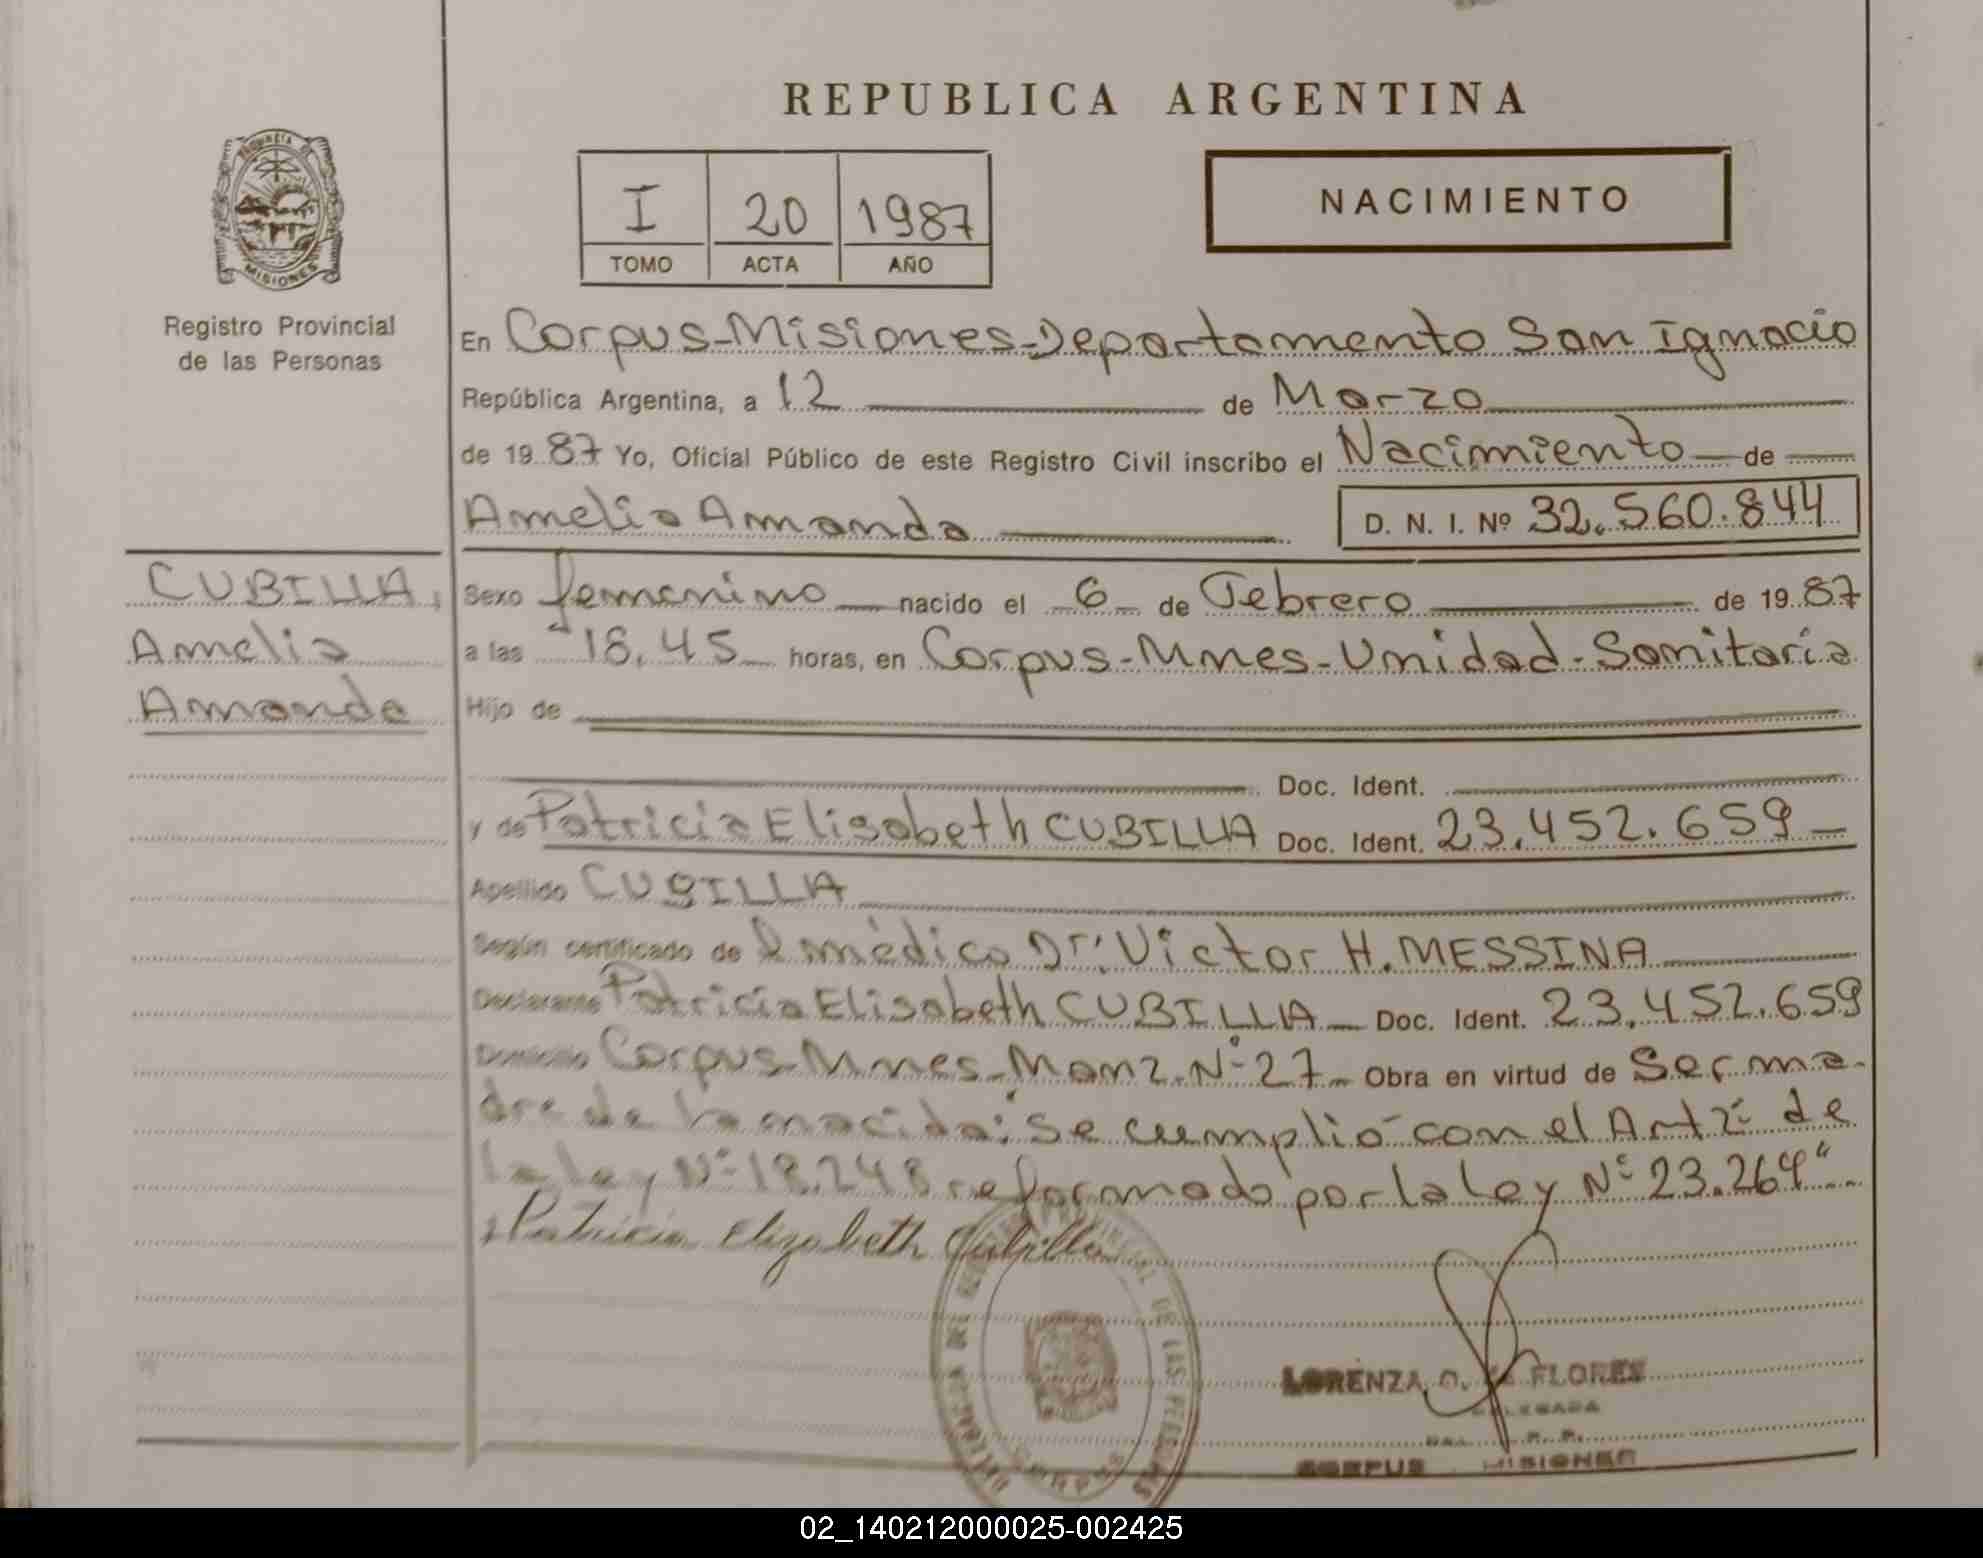 REPUBLICA ARGENTINA
PROVINCIA DE
MISIONES
Registro Provincial
de las Personas
I 20 1987
TOMO ACTA AÑO
NACIMIENTO
En Corpus-Misiones-Departamento San Ignacio
República Argentina, a 12 de Marzo
de 1987 Yo, Oficial Público de este Registro Civil inscribo el Nacimiento de
Amelia Amanda D. N. I. Nº 32.560.844
CUBILLA,
Amelia
Amanda
Sexo femenino nacido el 6 de Febrero de 1987
a las 18,45 horas, en Corpus-Mnes-Unidad-Sanitaria
Hijo de
Doc. Ident.
y de Patricia Elisabeth CUBILLA Doc. Ident. 23.452.659
Apellido CUBILLA
Según certificado de l médico Dr: Victor H. MESSINA
Declarante Patricia Elisabeth CUBILLA Doc. Ident. 23.452.659
Domicilio Corpus-Mnes-Manz.Nº27 Obra en virtud de Ser ma-
dre de la nacida: "Se cumplió con el Art 2º de
la ley Nº 18.248 reformado por la Ley Nº 23.264"
Patricia Elizabeth Cubilla
DE LAS PERSONAS
CORPUS
LORENZA FLORES
DELEGADA
CORPUS MISIONES
02_140212000025-002425